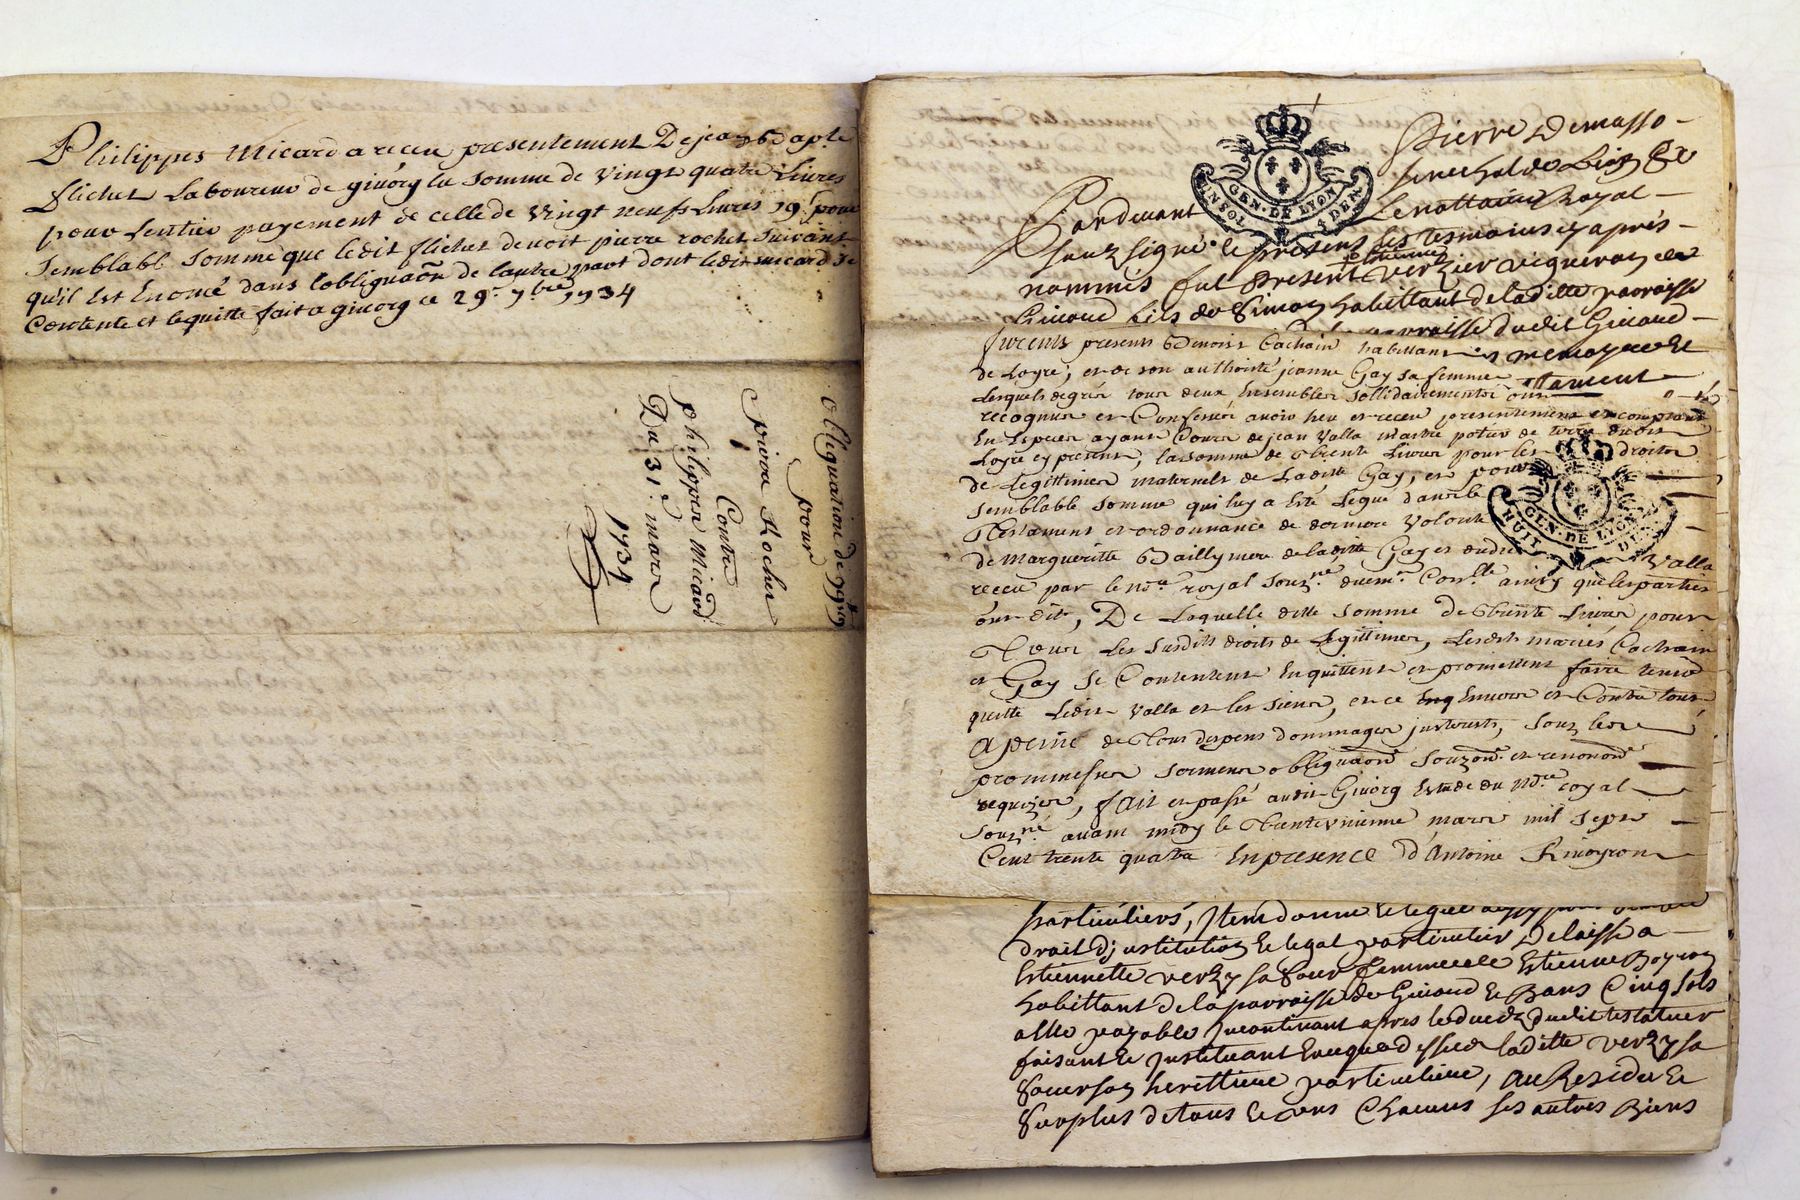 Philippes Micard a receu presentement De jean bapte
flichet Laboureur de givorg la somme de vingt quatre Livres
pour lentier payement de celle de vingt neufs Livres 19s pour
semblabl somme que ledit flichet devoit pierre rochet suivant
qu'il est Enoncé dans l'obligaon de l'autre part dont ledit micard se
Contente et le quitte fait a givorg ce 29e 7bre 1734
obliguation de 29# 19s
pour
pierre Rochet
Contre
philippes Micard
Du 31. mars
1734
Pierre Demasso
senechal de Lion Et
GEN. DE LYON
UN SOL 4 DEN
Pardevant Le nottaire Royal
souz signé & presens les tesmoins cy apres
nommés fut Present Verzier vigneron de
Givord fils de Simon habittant de laditte parroisse
parroisse dudit Givord
furents presents Benoist Cachain habittant
de Loyre, et de son authorité jeanne Gay sa femme
Lesquels degrés tous deux Ensembles sollidairements ont
recognus et Confessés avoir heu et receu presentement et comptant
En Especes ayant Cours de jean Valla maitre potier de terre dudit
Loyre cy present, la somme de Trente Livres pour les droits
de Legittimes maternels de Laditte Gay, et pour
semblable somme qui luy a Eté Legué dans le
Testament et ordonnance de derniere volonté
de Margueritte Bailly mere de laditte Gay et dudit Valla
GEN. DE LYON
HUIT DEN
receu par le nore royal souzné duemt Conlle ainsy que les parties
ont dit, De Laquelle ditte somme de Trente Livres pour
Tous Les susdits droits de Legittimes, Lesdits mariés Cachain
et Gay se Contentent En quittent et promettent faire tenir
quitte Ledit Valla et les siens, et ce Envers et Contre tous
a peine de Tous depens dommages jnterests, souz les
promesses serments obligaons souzons et renonons
requizes, fait et passé audit Givorg Estude du nore royal
souzné avant midy le Trente unieme mars mil sept
Cent trente quatre En presence d'Antoine Rivoyron
particuliers, Jtem donne Et legue aussy pour
droit d'jnstitution Et legat particulier Delaisse a
Estiennette verzy sa sœur femme de Estienne Boyron
habittant de la parroisse de Givord Et Bans Cinq sols
a Elle payable jncontinant apres le deces dudit testateur
faisant Et jnstituant En ce que dessus laditte verzy sa
sœur son herittiere particuliere, Au Residu Et
surplus de tous Et uns Chacuns ses autres Biens